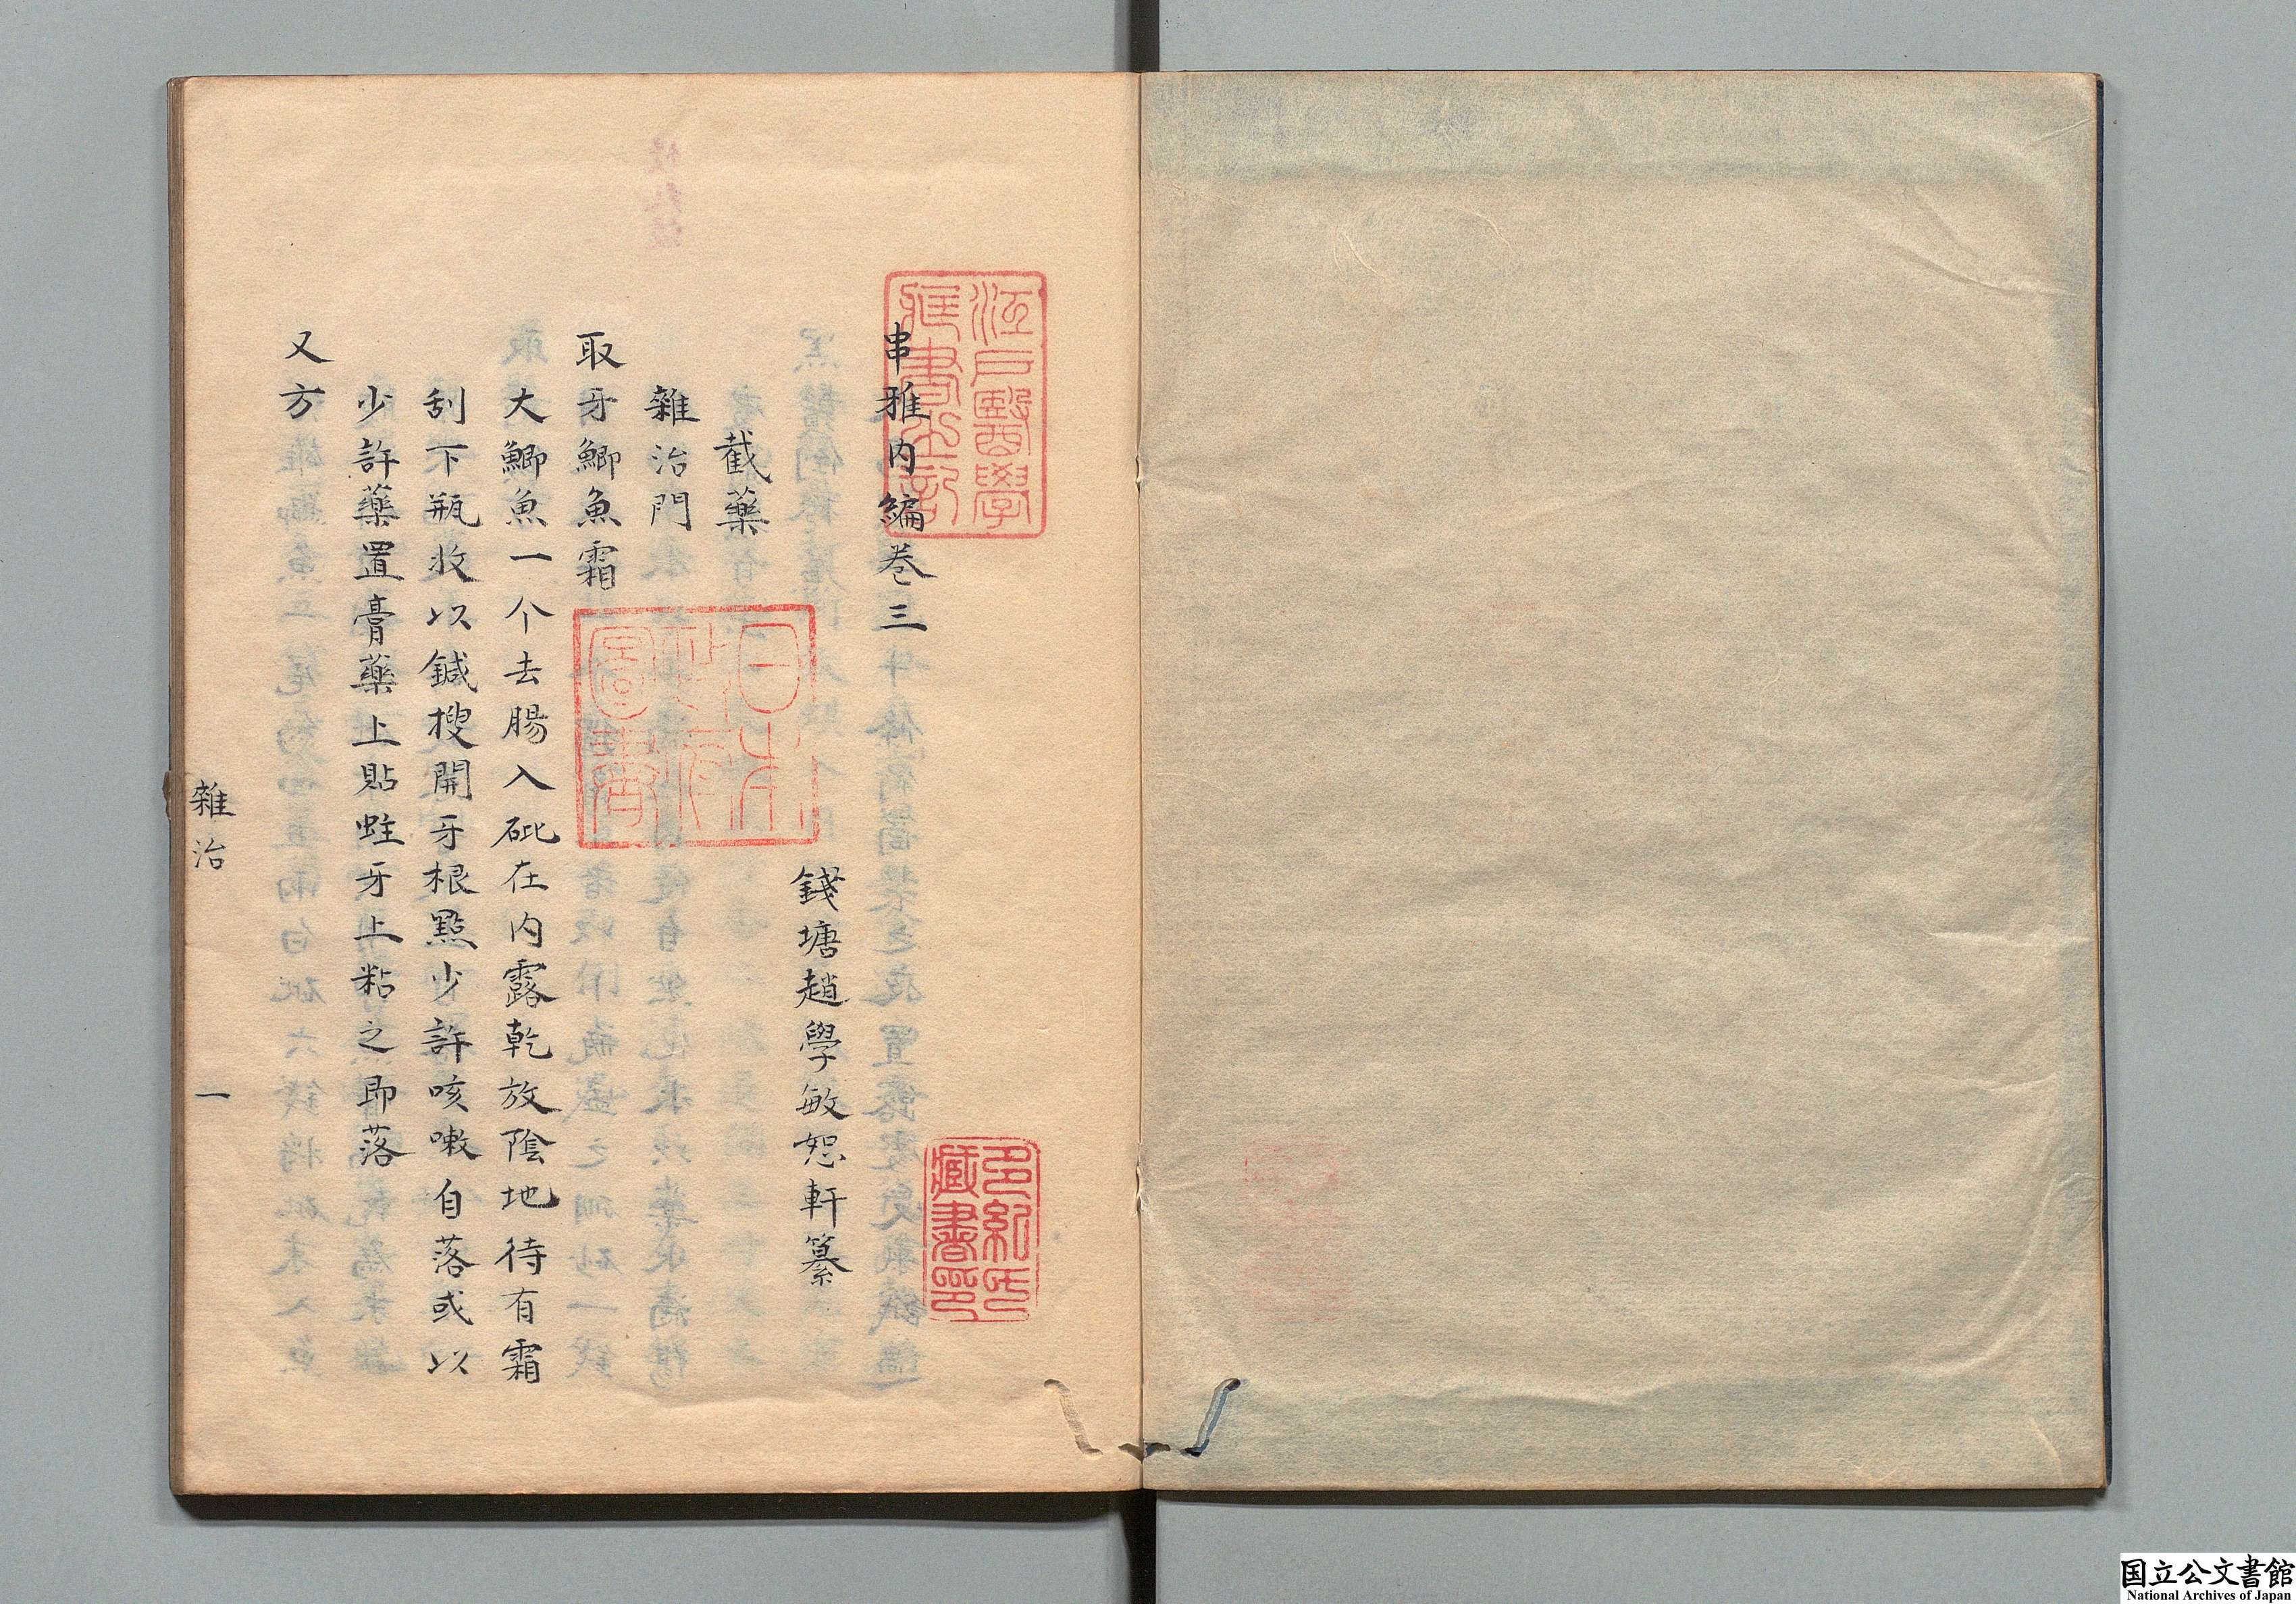 串雅内編卷三
錢塘趙學敏恕軒纂
截藥
雜治門
取牙鯽魚霜
大鯽魚一个去腸入砒在内露乾放陰地待有霜
刮下瓶收以鍼搜開牙根點少許咳嗽自落或以
少許藥置膏藥上貼蛀牙上粘之即落
又方
雜治
一
江戸醫學
藏書之記
日本
政府
圖書
多紀氏
藏書印
国立公文書館
National Archives of Japan